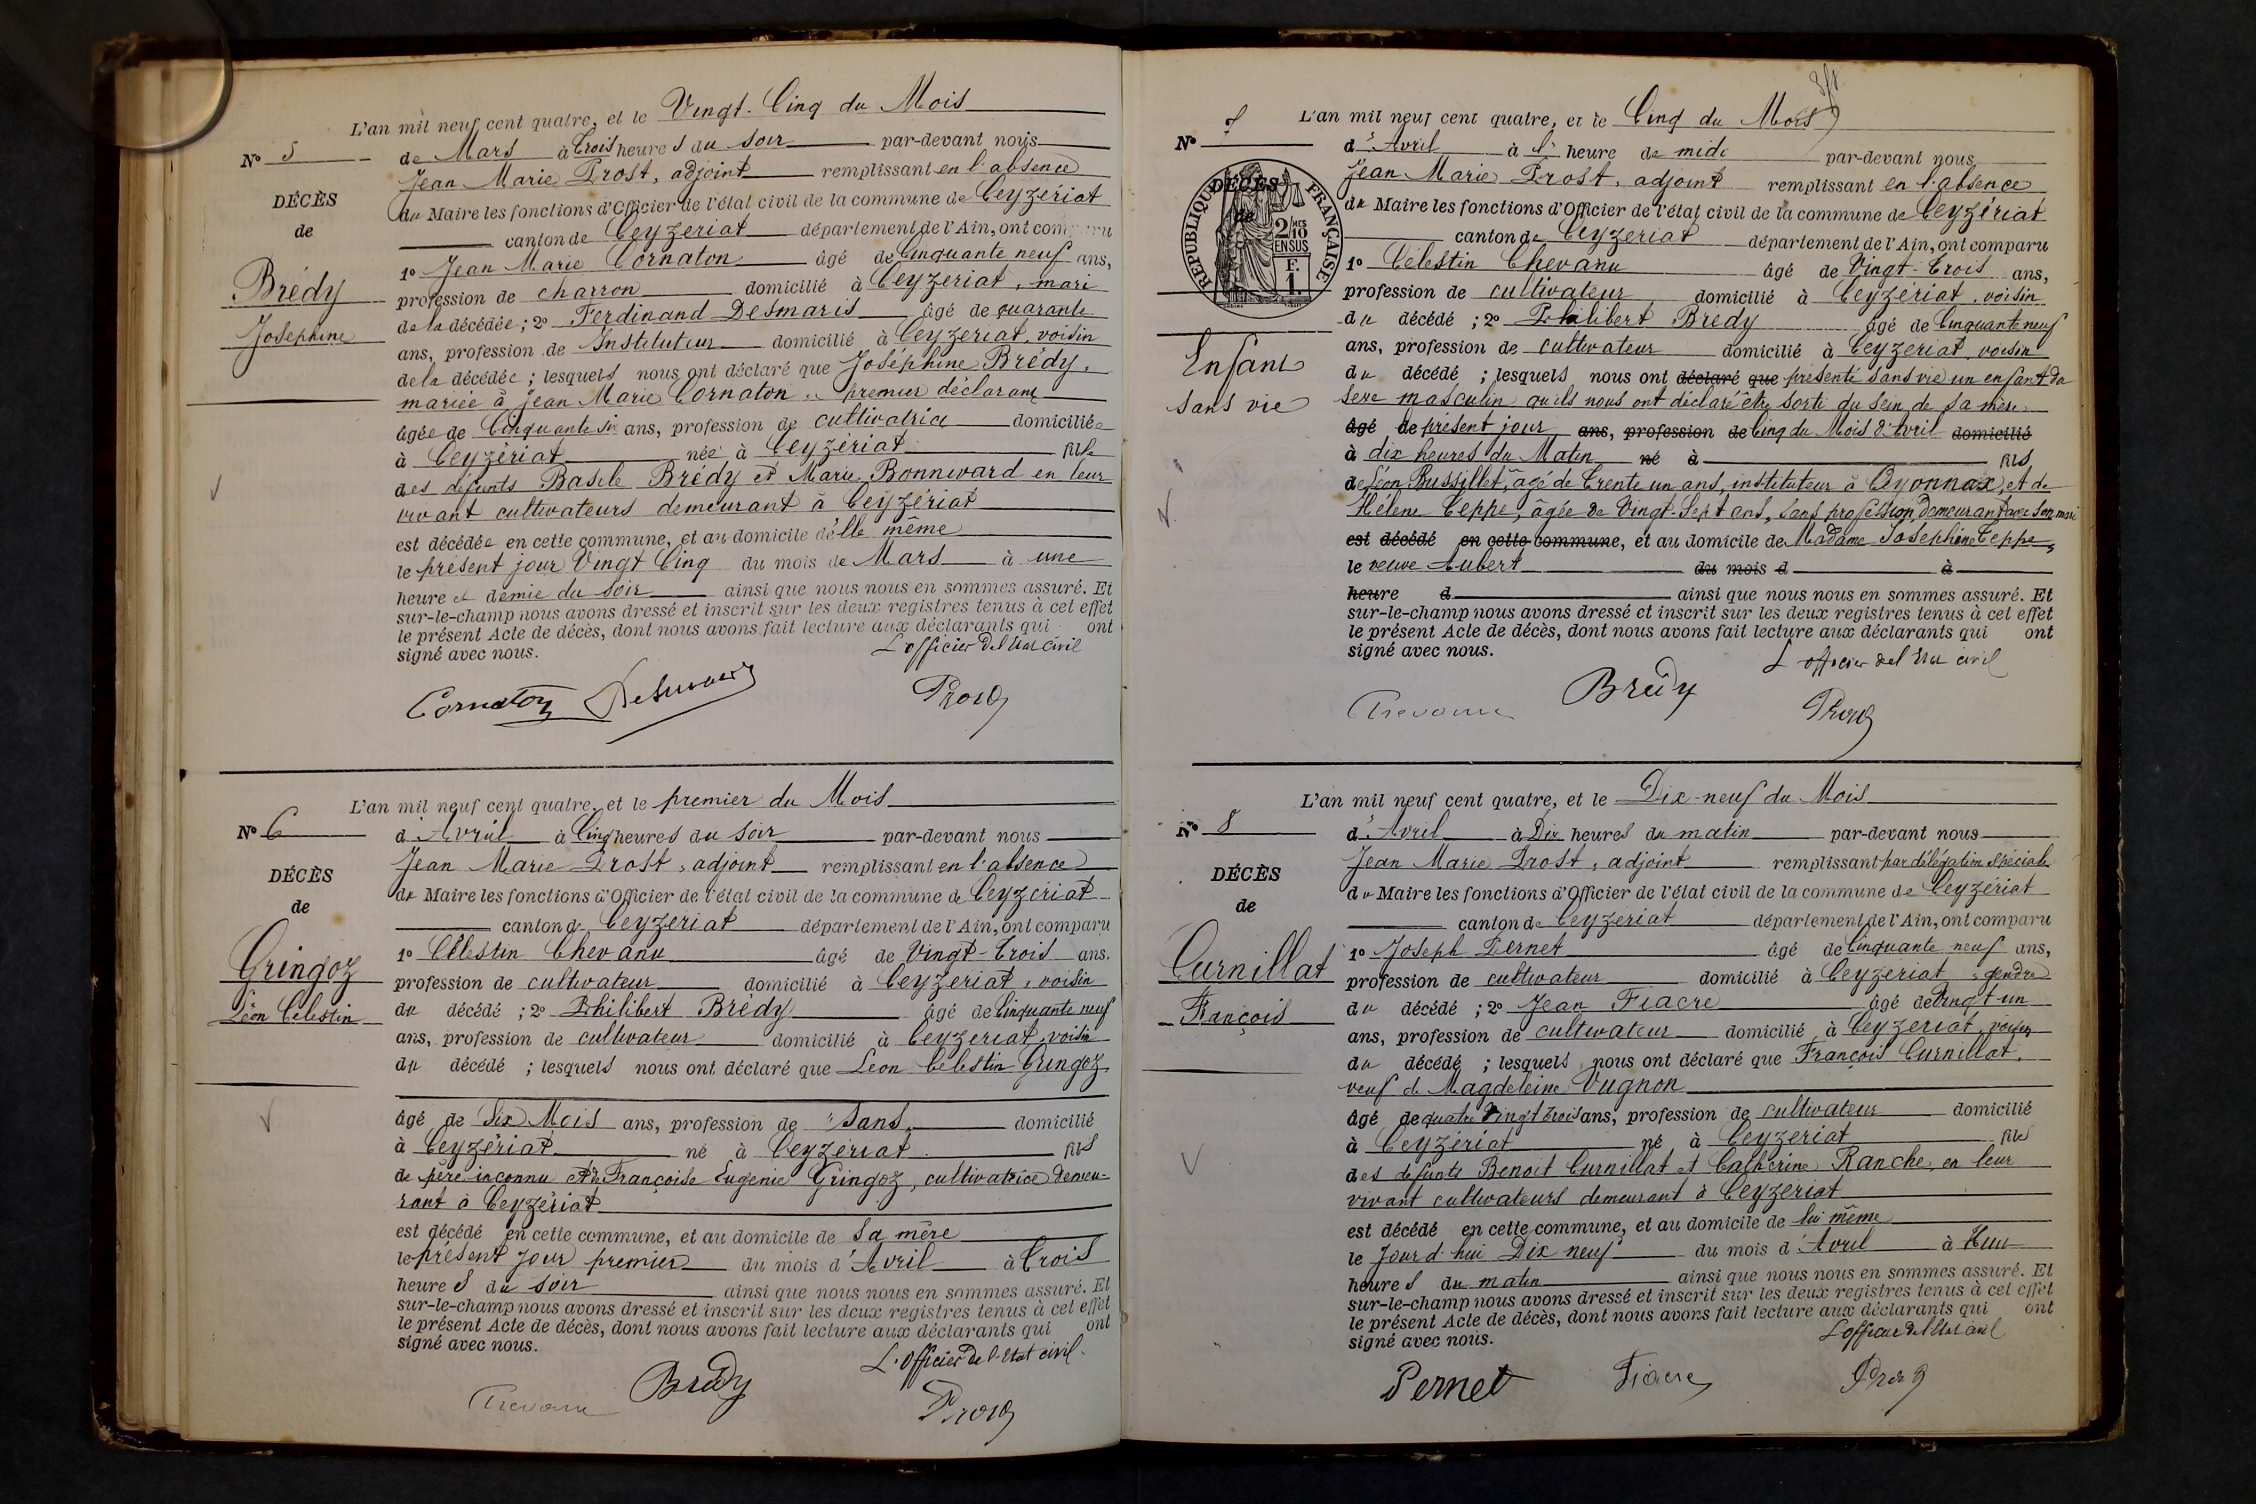 L'an mil neuf cent quatre, et le Vingt-Cinq du Mois
N° 5
de Mars à trois heures du soir par-devant nous
Jean Marie Prost, adjoint remplissant en l'absence
DÉCÈS
du Maire les fonctions d'Officier de l'état civil de la commune de Ceyzériat
de
canton de Ceyzeriat département de l'Ain, ont comparu
1° Jean Marie Cornaton âgé de Cinquante neuf ans,
Brédy
profession de charron domicilié à Ceyzeriat, mari
Joséphine
de la décédée ; 2° Ferdinand Desmaris âgé de quarante
ans, profession de Instituteur domicilié à Ceyzeriat, voisin
de la décédée ; lesquels nous ont déclaré que Joséphine Brédy,
mariée à Jean Marie Cornaton, premier déclarant
âgée de Cinquante six ans, profession de cultivatrice domiciliée
à Ceyzériat née à Ceyzériat fille
des défunts Basile Brédy et Marie Bonnevard en leur
vivant cultivateurs demeurant à Ceyzériat
est décédée en cette commune, et au domicile d'elle même
le présent jour Vingt Cinq du mois de Mars à une
heure et demie du soir ainsi que nous nous en sommes assuré. Et
sur-le-champ nous avons dressé et inscrit sur les deux registres tenus à cet effet
le présent Acte de décès, dont nous avons fait lecture aux déclarants qui ont
signé avec nous. L'officier de l'Etat civil
Cornaton Desmaris Prost
L'an mil neuf cent quatre, et le premier du Mois
N° 6
d'Avril à Cinq heures du soir par-devant nous
Jean Marie Prost, adjoint remplissant en l'absence
DÉCÈS
du Maire les fonctions d'Officier de l'état civil de la commune de Ceyzériat
de
canton de Ceyzeriat département de l'Ain, ont comparu
1° Célestin Chevanu âgé de Vingt-trois ans,
Gringoz
profession de cultivateur domicilié à Ceyzeriat, voisin
Léon Célestin
du décédé ; 2° Philibert Brédy âgé de Cinquante neuf
ans, profession de cultivateur domicilié à Ceyzeriat, voisin
du décédé ; lesquels nous ont déclaré que Léon Célestin Gringoz
âgé de Six Mois ans, profession de Sans domicilié
à Ceyzériat né à Ceyzériat fils
de père inconnu et de Françoise Eugenie Gringoz, cultivatrice demeu-
rant à Ceyzériat
est décédé en cette commune, et au domicile de sa mère
le présent jour premier du mois d'Avril à trois
heures du soir ainsi que nous nous en sommes assuré. Et
sur-le-champ nous avons dressé et inscrit sur les deux registres tenus à cet effet
le présent Acte de décès, dont nous avons fait lecture aux déclarants qui ont
signé avec nous. L'Officier de l'Etat civil
Chevanu Brédy Prost
L'an mil neuf cent quatre, et le Cinq du Mois
N° 7
d'Avril à l' heure de midi par-devant nous
Jean Marie Prost, adjoint remplissant en l'absence
DÉCÈS
de
RÉPUBLIQUE FRANÇAISE
2/10 EN SUS
F. 1.
du Maire les fonctions d'Officier de l'état civil de la commune de Ceyzériat
canton de Ceyzeriat département de l'Ain, ont comparu
1° Célestin Chevanu âgé de Vingt-trois ans,
profession de cultivateur domicilié à Ceyzériat, voisin
du décédé ; 2° Philibert Brédy âgé de Cinquante neuf
Enfant
ans, profession de cultivateur domicilié à Ceyzeriat, voisin
du décédé ; lesquels nous ont déclaré que présenté sans vie un enfant du
sans vie
sexe masculin qu'ils nous ont déclaré être sorti du sein de sa mère
âgé de présent jour ans, profession de Cinq du Mois d'Avril domicilié
à dix heures du Matin né à fils
de Léon Bussillet, âgé de trente un ans, instituteur à Oyonnax, et de
Hélène Teppe, âgée de Vingt-Sept ans, sans profession, demeurant avec son mari
est décédé en cette commune, et au domicile de Madame Joséphine Teppe,
le veuve Aubert du mois d à
heure d ainsi que nous nous en sommes assuré. Et
sur-le-champ nous avons dressé et inscrit sur les deux registres tenus à cet effet
le présent Acte de décès, dont nous avons fait lecture aux déclarants qui ont
signé avec nous. L'officier de l'Etat civil
Chevanu Brédy Prost
L'an mil neuf cent quatre, et le Dix-neuf du Mois
N° 8
d'Avril à Dix heures du matin par-devant nous
Jean Marie Prost, adjoint remplissant par délégation spéciale
DÉCÈS
du Maire les fonctions d'Officier de l'état civil de la commune de Ceyzériat
de
canton de Ceyzeriat département de l'Ain, ont comparu
1° Joseph Pernet âgé de Cinquante neuf ans,
Curnillat
profession de cultivateur domicilié à Ceyzeriat, gendre
François
du décédé ; 2° Jean Fiacre âgé de Vingt-un
ans, profession de cultivateur domicilié à Ceyzeriat, voisin
du décédé ; lesquels nous ont déclaré que François Curnillat,
veuf de Magdeleine Vugnon
âgé de quatre Vingt trois ans, profession de cultivateur domicilié
à Ceyzériat né à Ceyzeriat fils
des défunts Benoit Curnillat et Catherine Ranche, en leur
vivant cultivateurs demeurant à Ceyzeriat
est décédé en cette commune, et au domicile de lui même
le Jourd'hui Dix neuf du mois d'Avril à
heures du matin ainsi que nous nous en sommes assuré. Et
sur-le-champ nous avons dressé et inscrit sur les deux registres tenus à cet effet
le présent Acte de décès, dont nous avons fait lecture aux déclarants qui ont
signé avec nous. L'officier de l'Etat civil
Pernet Fiacre Prost